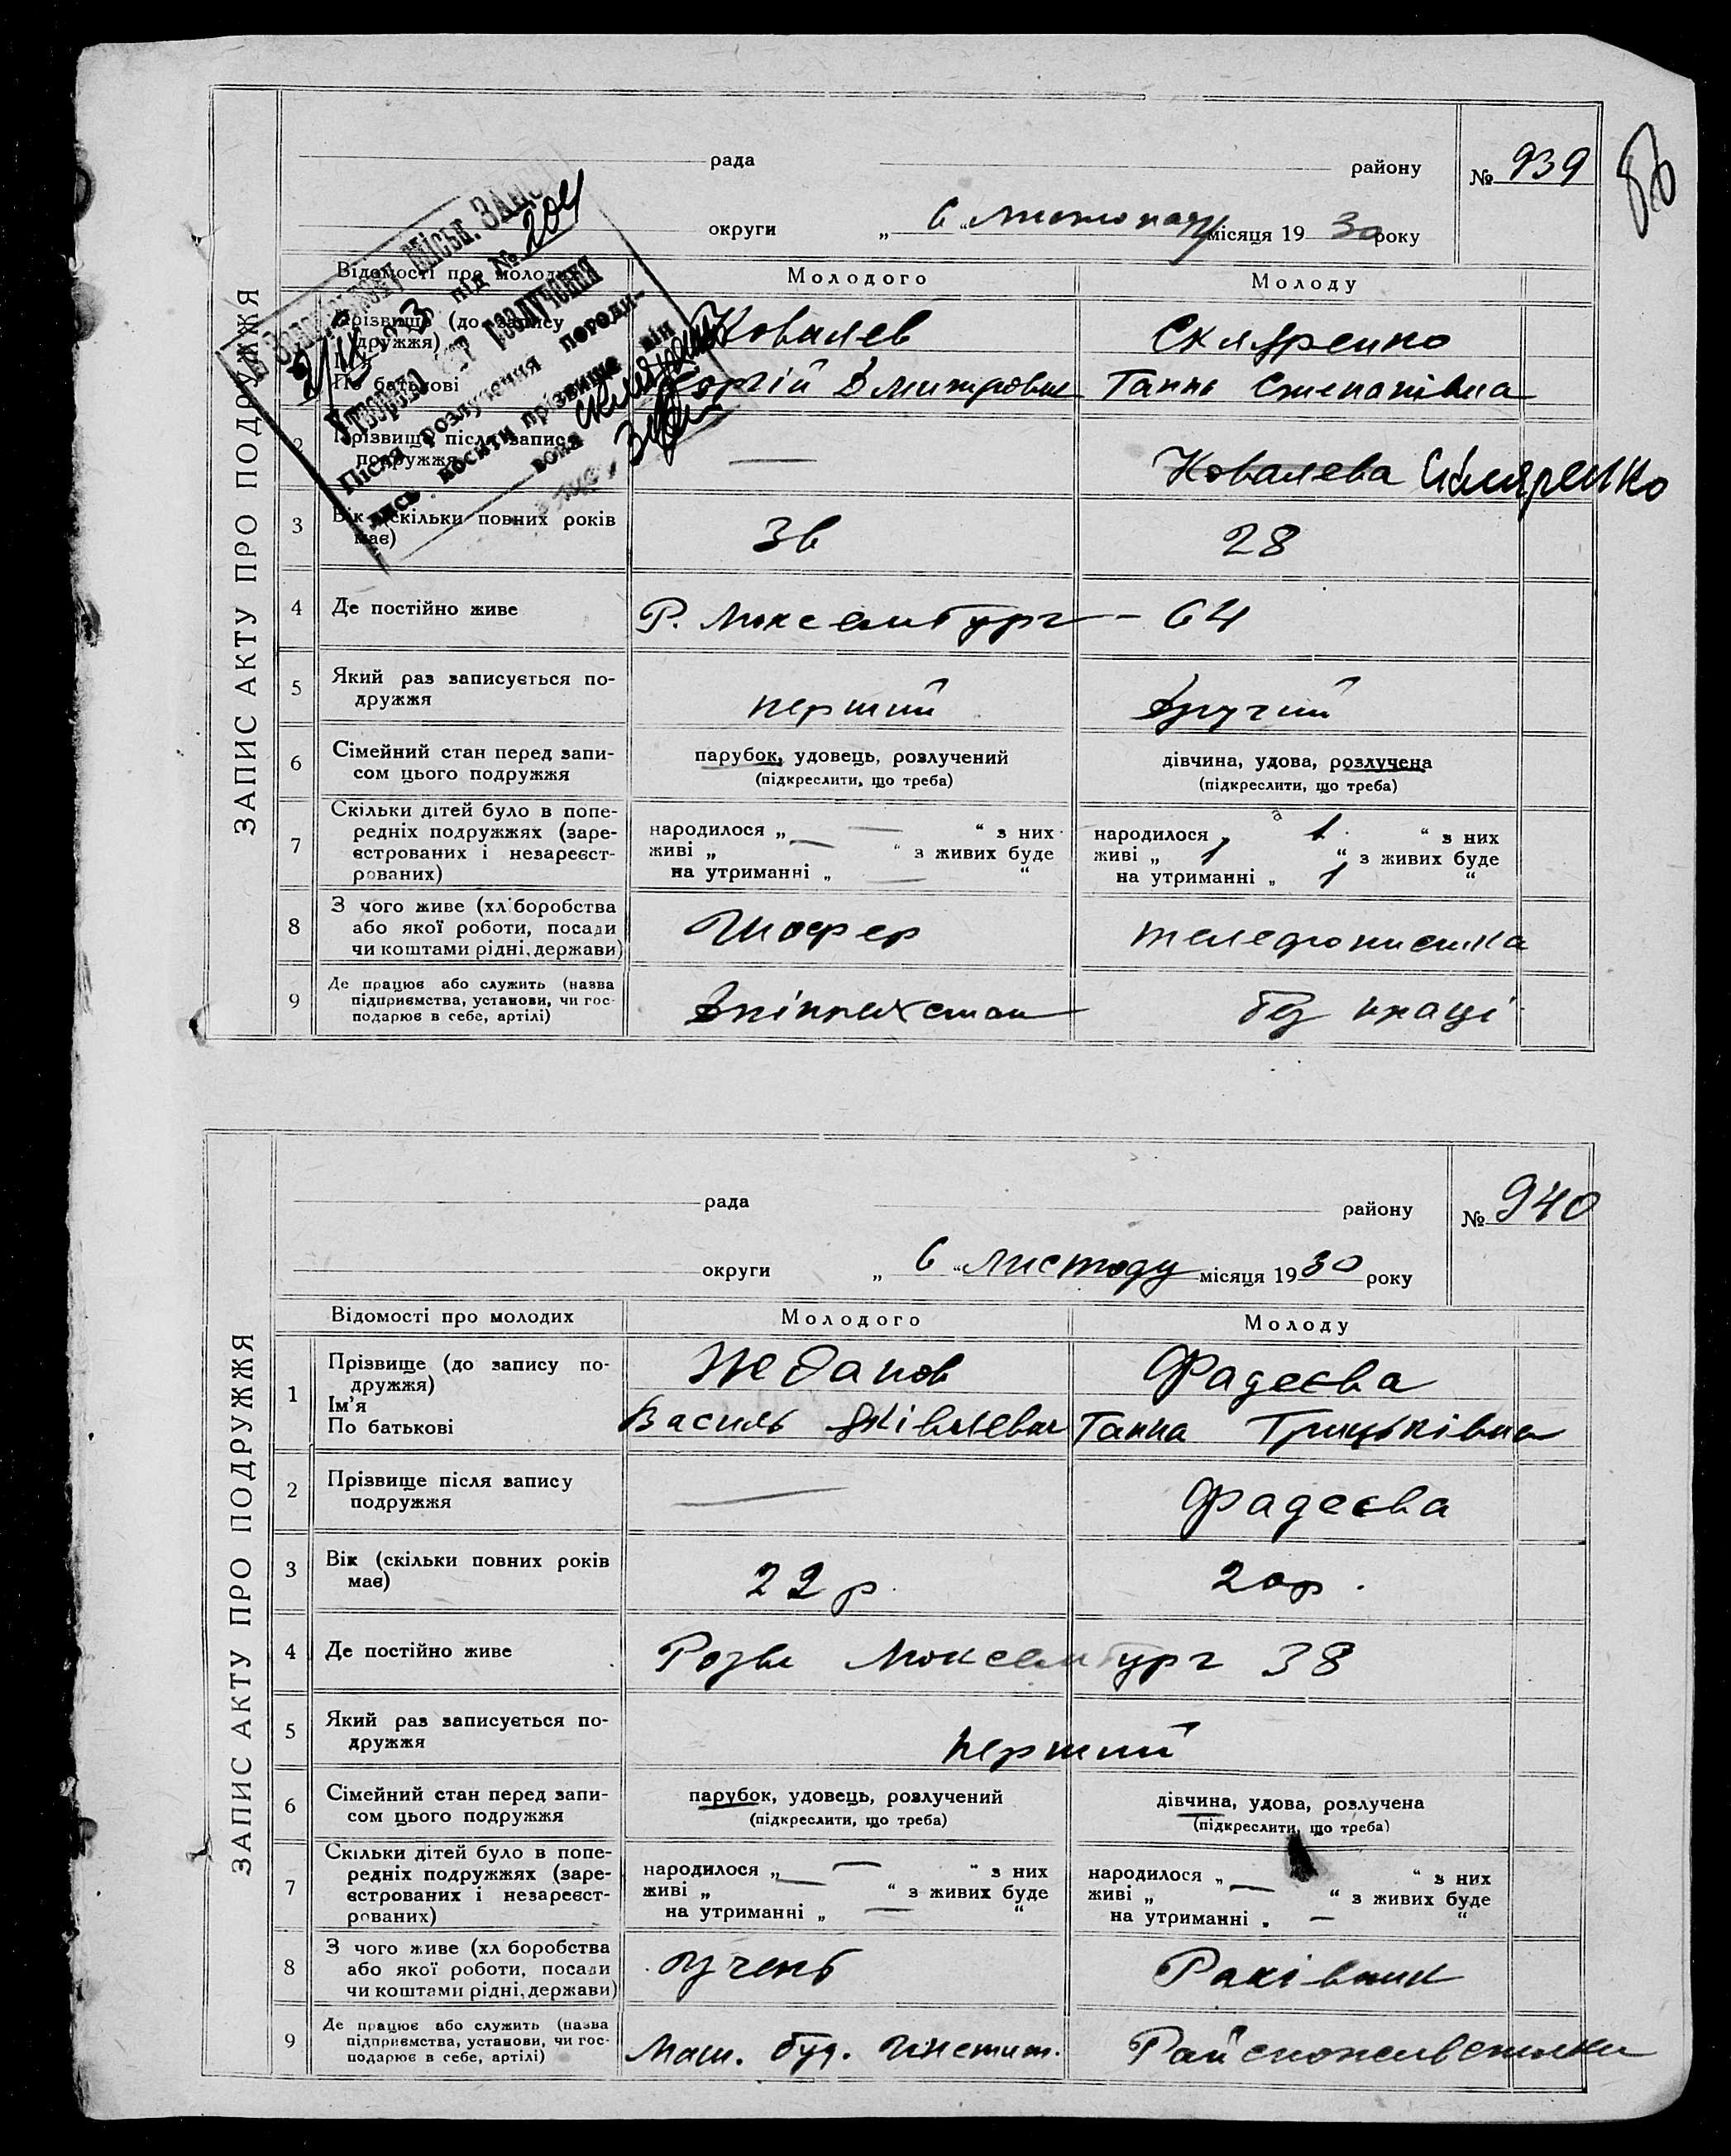 80
ЗАПИС АКТУ ПРО ПОДРУЖЖЯ
рада району № 939
округи „ 6 “ листопаду місяця 19 30 року
Відомості про молодих Молодого Молоду
під № 204
Утворено акт розлучення
Після розлучення породи-
лись носити прізвище він
вона Скляренко
Прізвище (до запису подружжя) Ковалев Скляренко
По батькові Георгій Дмитрович Ганна Степанівна
2 Прізвище після запису
подружжя — Ковалева Скляренко
3 Вік (скільки повних років
має) 36 28
4 Де постійно живе Р. Люксембург - 64
5 Який раз записується по-
дружжя перший другий
6 Сімейний стан перед запи-
сом цього подружжя парубок, удовець, розлучений дівчина, удова, розлучена
(підкреслити, що треба) (підкреслити, що треба)
7 Скільки дітей було в попе-
редніх подружжях (заре-
єстрованих і незареєст-
рованих)
народилося „ — “ з них народилося „ 1 “ з них
живі „ — “ з живих буде живі „ 1 “ з живих буде
на утриманні „ — “ на утриманні „ 1 “
8 З чого живе (хліборобства
або якої роботи, посади
чи коштами рідні, держави) Шофер телефонистка
9 Де працює або служить (назва
підприємства, установи, чи гос-
подарює в себе, артілі) без праці
ЗАПИС АКТУ ПРО ПОДРУЖЖЯ
рада району № 940
округи „ 6 “ листоду місяця 19 30 року
Відомості про молодих Молодого Молоду
1 Прізвище (до запису по-
дружжя) Жданов Фадеєва
Ім'я
По батькові Василь Яківлевич Ганна Грицьківна
2 Прізвище після запису
подружжя — Фадеєва
3 Вік (скільки повних років
має) 22 р. 20 р.
4 Де постійно живе Рози Люксембург 38
5 Який раз записується по-
дружжя перший
6 Сімейний стан перед запи-
сом цього подружжя парубок, удовець, розлучений дівчина, удова, розлучена
(підкреслити, що треба) (підкреслити, що треба)
7 Скільки дітей було в попе-
редніх подружжях (заре-
єстрованих і незареєст-
рованих)
народилося „ — “ з них народилося „ “ з них
живі „ — “ з живих буде живі „ — “ з живих буде
на утриманні „ — “ на утриманні „ — “
8 З чого живе (хліборобства
або якої роботи, посади
чи коштами рідні, держави) учень Рахівник
9 Де працює або служить (назва
підприємства, установи, чи гос-
подарює в себе, артілі) Маш. буд. Инстит. Райспоживспилка